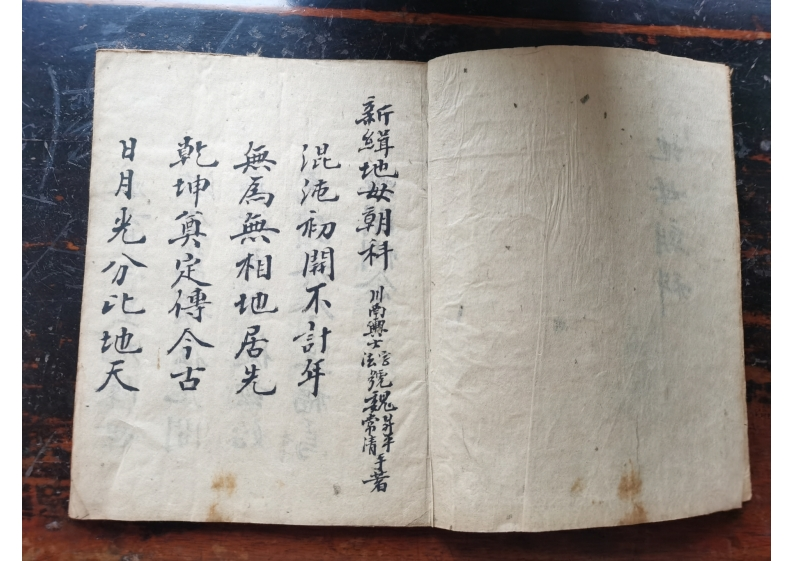 新緝地母朝科
川南興士字號魏昇平
法號常清手著
混沌初開不計年
無為無相地居先
乾坤奠定傳今古
日月光分比地天
地母朝科